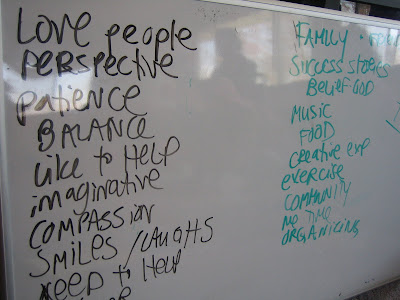 LOVE people
PERSPECTIVE
patience
BALANCE
Like to HELP
imaginative
COMPASSION
SMILES / LAUGHS
NEED to Help
FAMILY
SUCCESS STORIES
BELIEF GOD
MUSIC
FOOD
Creative exp
exercise
COMMUNITY
me TIME
ORGANIZING